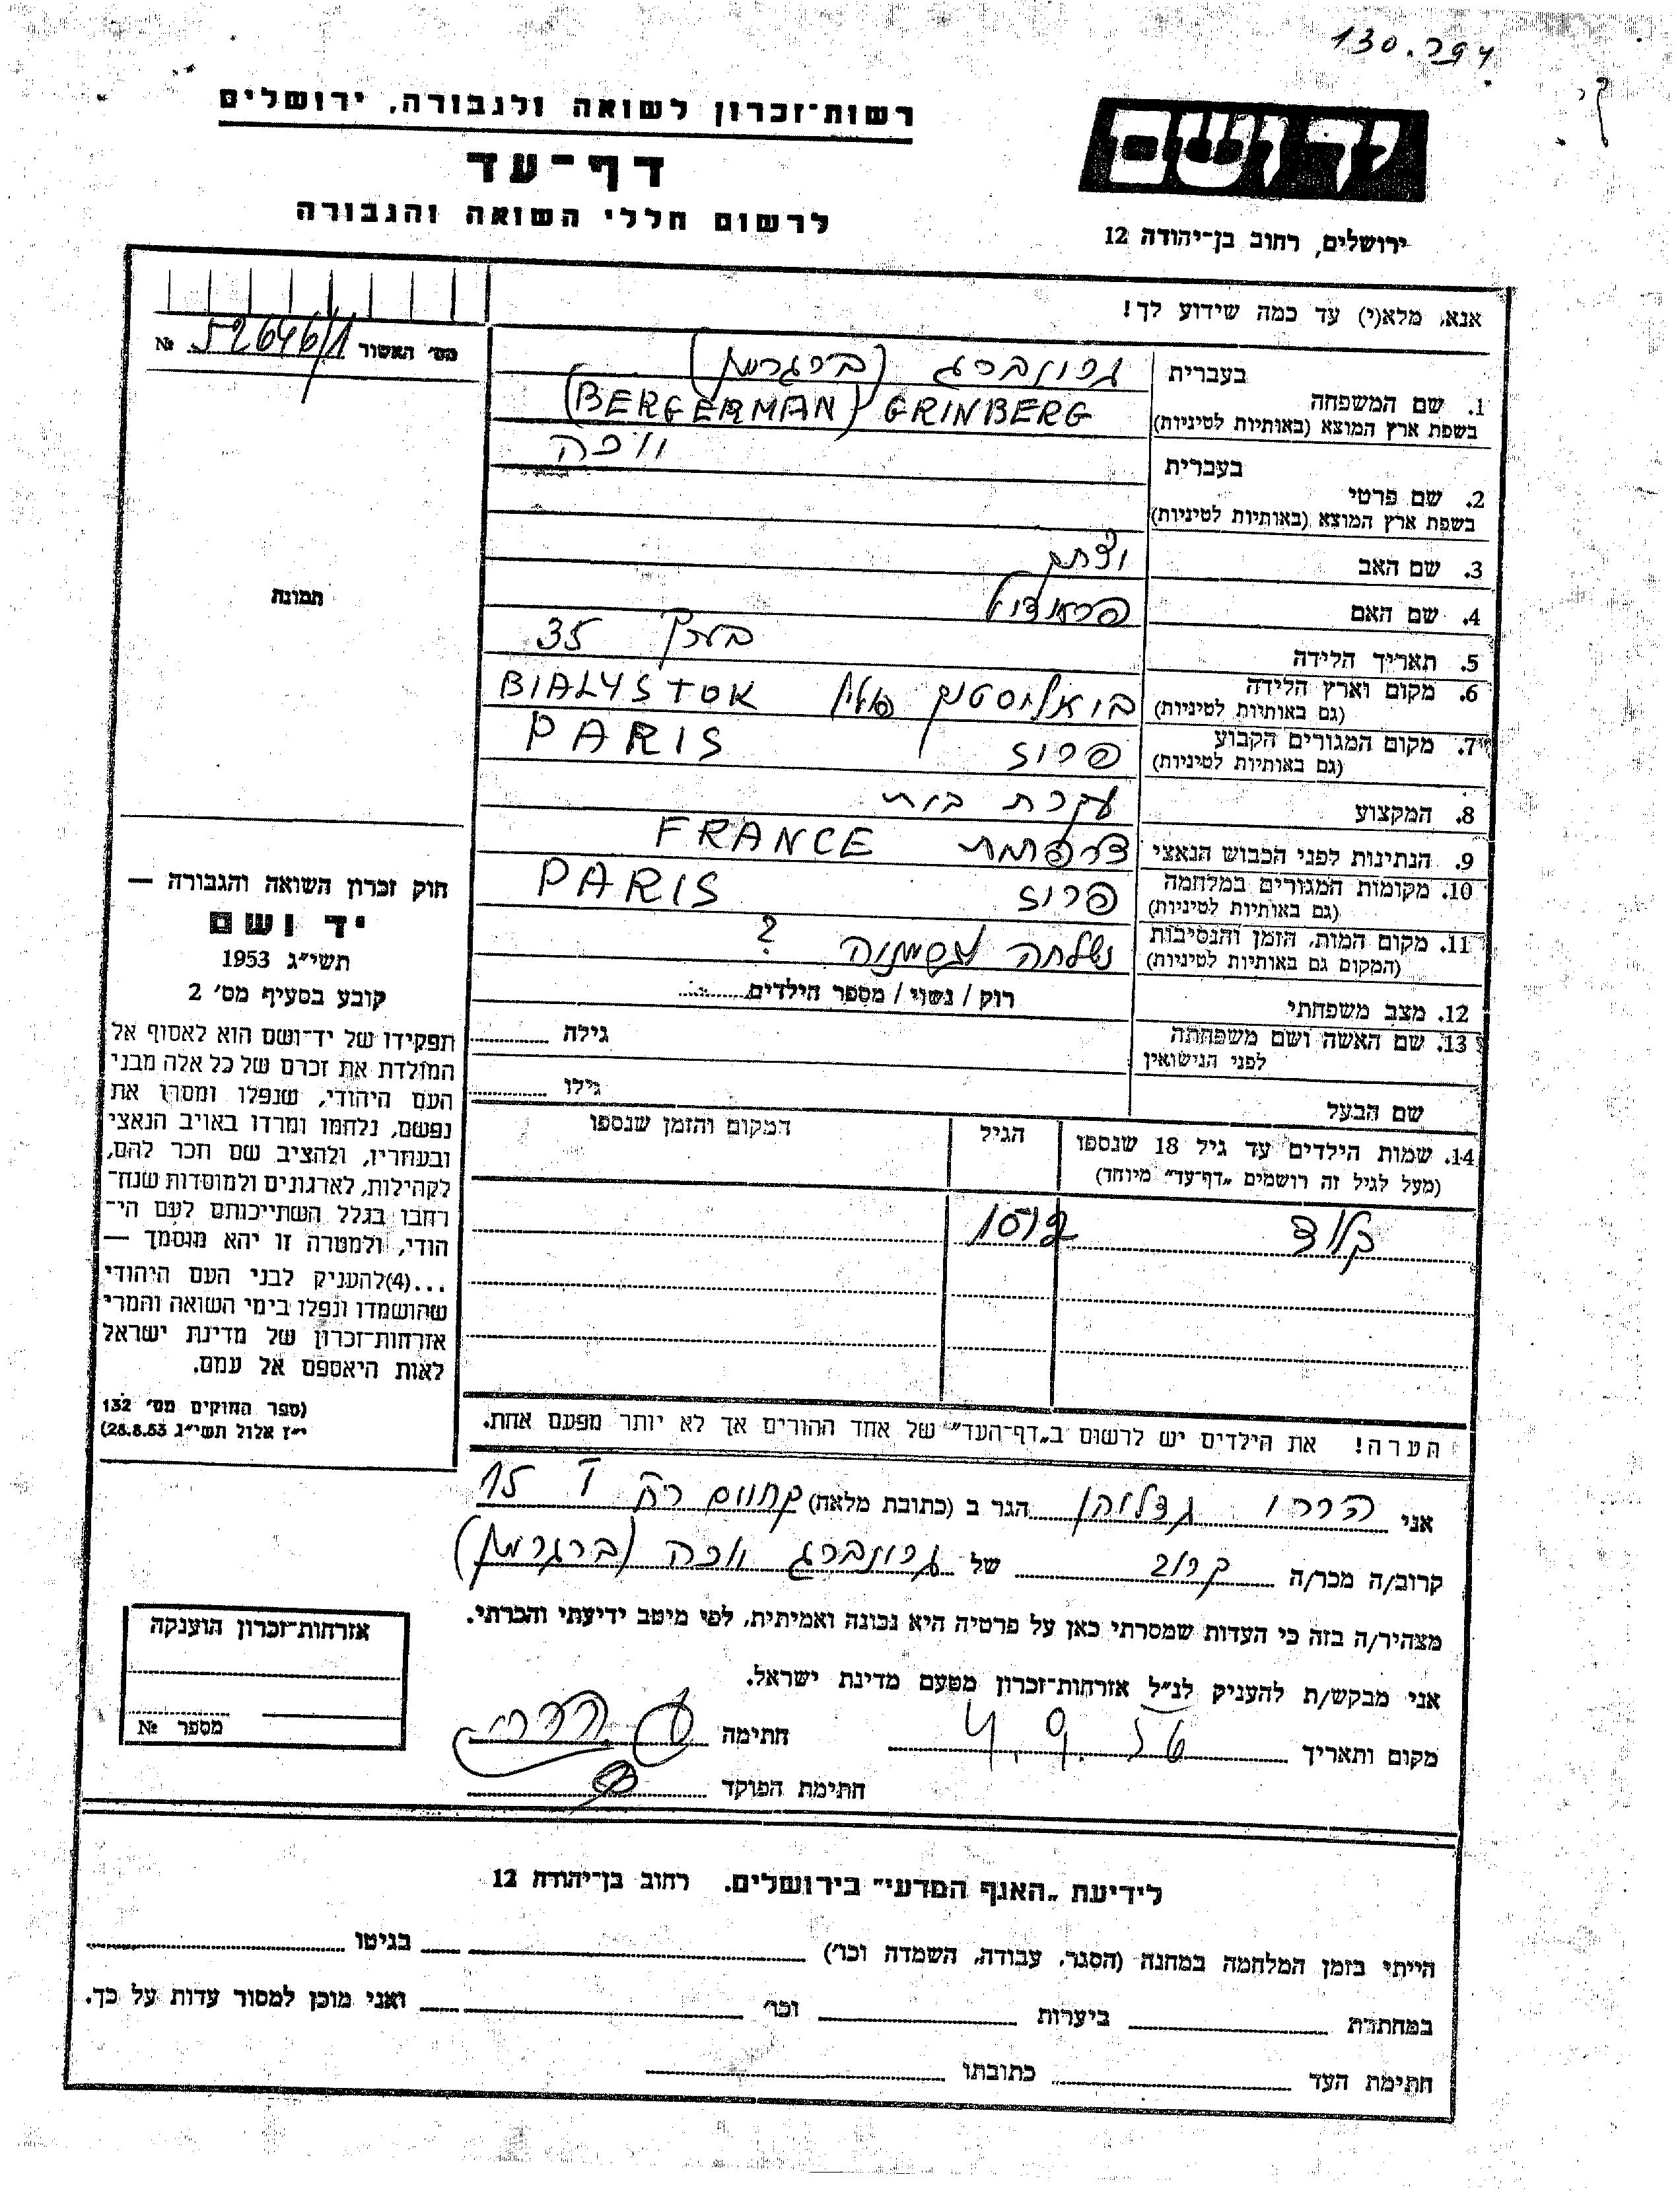 130.רפד
רשות־זכרון לשואה ולגבורה, ירושלים
יד ושם
דף־עד
לרשום חללי השואה והגבורה
ירושלים, רחוב בן־יהודה 12
אנא, מלא(י) עד כמה שידוע לך!
מס׳ האשור 52646/1 №
בעברית גרינברג (ברגרמן)
1. שם המשפחה
בשפת ארץ המוצא (באותיות לטיניות) (BERGERMAN) GRINBERG
בעברית
2. שם פרטי
בשפת ארץ המוצא (באותיות לטיניות)
3. שם האב יצחק
4. שם האם
5. תאריך הלידה בערך 35
6. מקום וארץ הלידה ביאליסטוק פולין BIALYSTOK
(גם באותיות לטיניות)
7. מקום המגורים הקבוע פריז PARIS
(גם באותיות לטיניות)
8. המקצוע עקרת בית
9. הנתינות לפני הכבוש הנאצי צרפתית FRANCE
10. מקומות המגורים במלחמה פריז PARIS
(גם באותיות לטיניות)
11. מקום המות, הזמן והנסיבות נשלחה להשמדה ?
(המקום גם באותיות לטיניות)
12. מצב משפחתי רוק / נשוי / מספר הילדים
13. שם האשה ושם משפחתה גילה
לפני הנישואין
שם הבעל גילו
14. שמות הילדים עד גיל 18 שנספו הגיל המקום והזמן שנספו
(מעל לגיל זה רושמים „דף־עד״ מיוחד)
קלוד
הערה! את הילדים יש לרשום ב„דף־העד״ של אחד ההורים אך לא יותר מפעם אחת.
תמונה
חוק זכרון השואה והגבורה —
יד ושם
תשי״ג 1953
קובע בסעיף מס׳ 2
תפקידו של יד־ושם הוא לאסוף אל
המולדת את זכרם של כל אלה מבני
העם היהודי, שנפלו ומסרו את
נפשם, נלחמו ומרדו באויב הנאצי
ובעוזריו, ולהציב שם וזכר להם,
לקהילות, לארגונים ולמוסדות שנח־
רחבו בגלל השתייכותם לעם הי־
הודי, ולמטרה זו יהא מוסמך —
...(4)להעניק לבני העם היהודי
שהושמדו ונפלו בימי השואה והמרי
אזרחות־זכרון של מדינת ישראל
לאות היאספם אל עמם.
(ספר החוקים מס׳ 132
י״ז אלול תשי״ג 28.8.53)
אני הררי גדליהו הגר ב (כתובת מלאה) 15
קרוב/ה מכר/ה קרוב של גרינברג (ברגרמן)
מצהיר/ה בזה כי העדות שמסרתי כאן על פרטיה היא נכונה ואמיתית, לפי מיטב ידיעתי והכרתי.
אני מבקש/ת להעניק לנ״ל אזרחות־זכרון מטעם מדינת ישראל.
מקום ותאריך 4.9.56 חתימה ג. הררי
חתימת הפוקד
אזרחות־זכרון הוענקה
מספר №
לידיעת „האגף המדעי״ בירושלים. רחוב בן־יהודה 12
הייתי בזמן המלחמה במחנה (הסגר, עבודה, השמדה וכו׳) בגיטו
במחתרת ביערות וכו׳ ואני מוכן למסור עדות על כך.
חתימת העד כתובתו